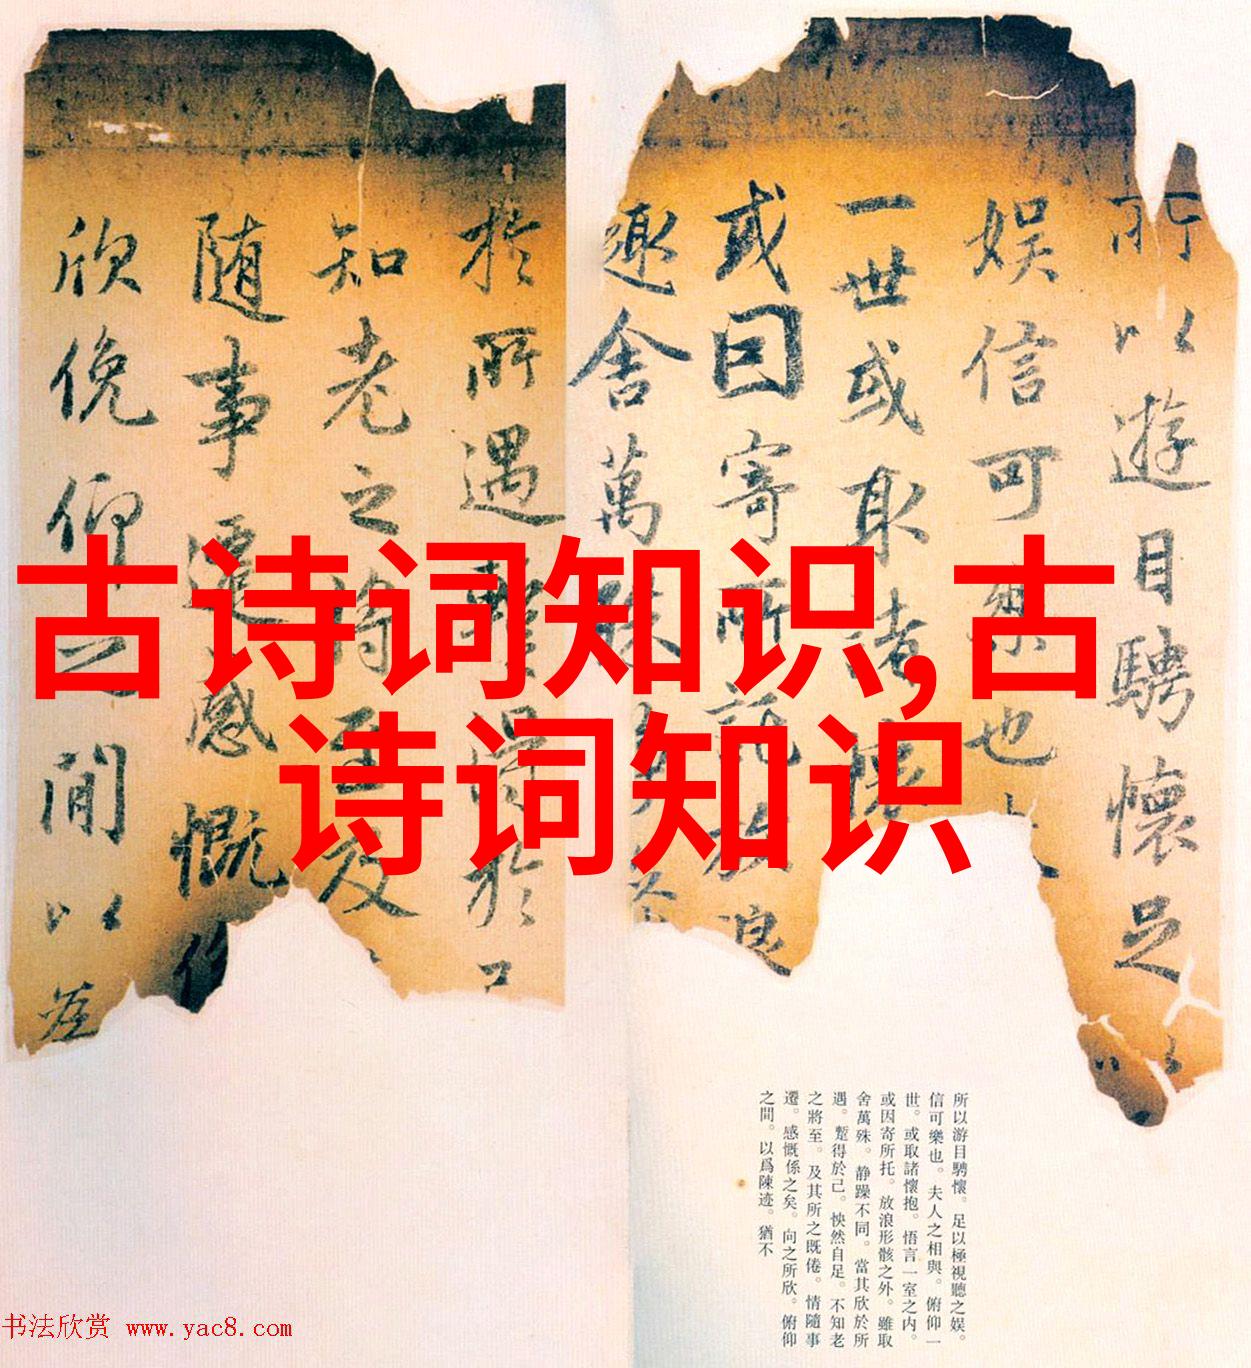 所以遊目騁懷足以
娱信可樂也
一世或取諸懷
或因寄所託放浪
趣舍萬殊
於所遇暫得於己
知老之將至及
随事遷感慨係
欣俛仰之間以為
古诗词知识,古
诗词知识
所以游目騁懷。足以極視聽之娱。
信可樂也。夫人之相與。俯仰一
世。或取諸懷抱。悟言一室之内。
或因寄所托。放浪形骸之外。雖取
舍萬殊。静躁不同。當其欣於所
遇。蹔得於己。怏然自足。不知老
之將至。及其所之既倦。情隨事
遷。感慨係之矣。向之所欣。俯仰
之間。以爲陳迹。猶不
书法欣赏 www.yac8.com